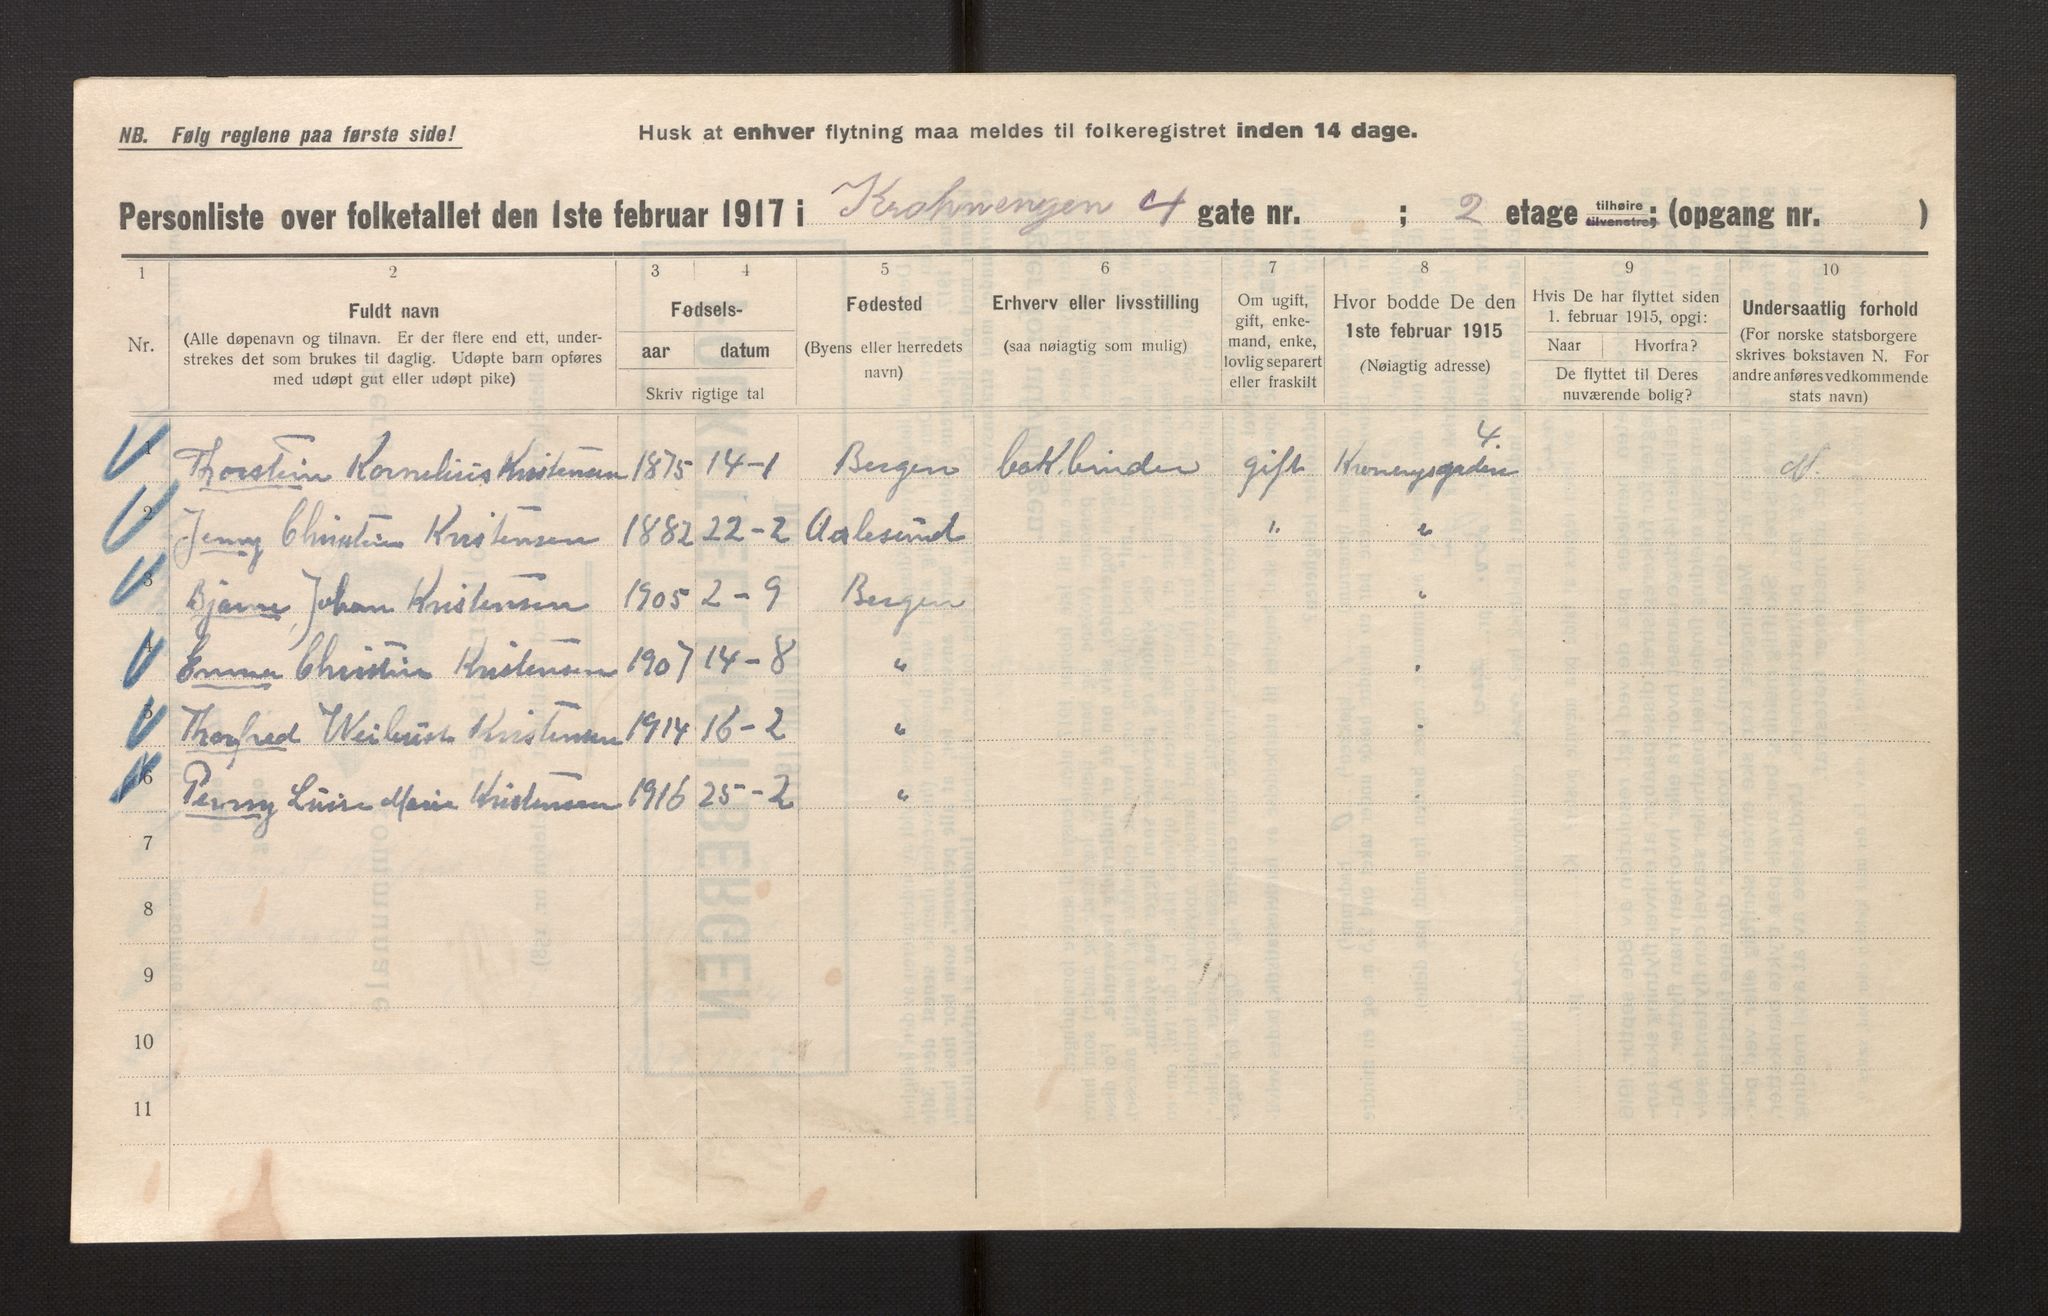 NB. Følg reglene paa første side!
Husk at enhver flytning maa meldes til folkeregistret inden 14 dage.
Personliste over folketallet den 1ste februar 1917 i Krohnengen 4 gate nr. ; 2 etage tilhøire tilvenstre; (opgang nr. )
1 2 3 4 5 6 7 8 9 10
Nr.
Fuldt navn
(Alle døpenavn og tilnavn. Er der flere end ett, under-
strekes det som brukes til daglig. Udøpte barn opføres
med udøpt gut eller udøpt pike)
Fødsels-
aar datum
Skriv rigtige tal
Fødested
(Byens eller herredets
navn)
Erhverv eller livsstilling
(saa nøiagtig som mulig)
Om ugift,
gift, enke-
mand, enke,
lovlig separert
eller fraskilt
Hvor bodde De den
1ste februar 1915
(Nøiagtig adresse)
Hvis De har flyttet siden
1. februar 1915, opgi:
Naar Hvorfra?
De flyttet til Deres
nuværende bolig?
Undersaatlig forhold
(For norske statsborgere
skrives bokstaven N. For
andre anføres vedkommende
stats navn)
1 Thorstein Kornelius Kristensen 1875 14-1 Bergen bokbinder gift Kronengsgaden 4. N.
2 Jenny Christine Kristensen 1882 22-2 Aalesund " "
3 Bjarne Johan Kristensen 1905 2-9 Bergen "
4 Emma Christine Kristensen 1907 14-8 " "
5 Thorfred Kristensen 1914 16-2 " "
6 Penny Luise Marie Kristensen 1916 25-2 "
7
8
9
10
11